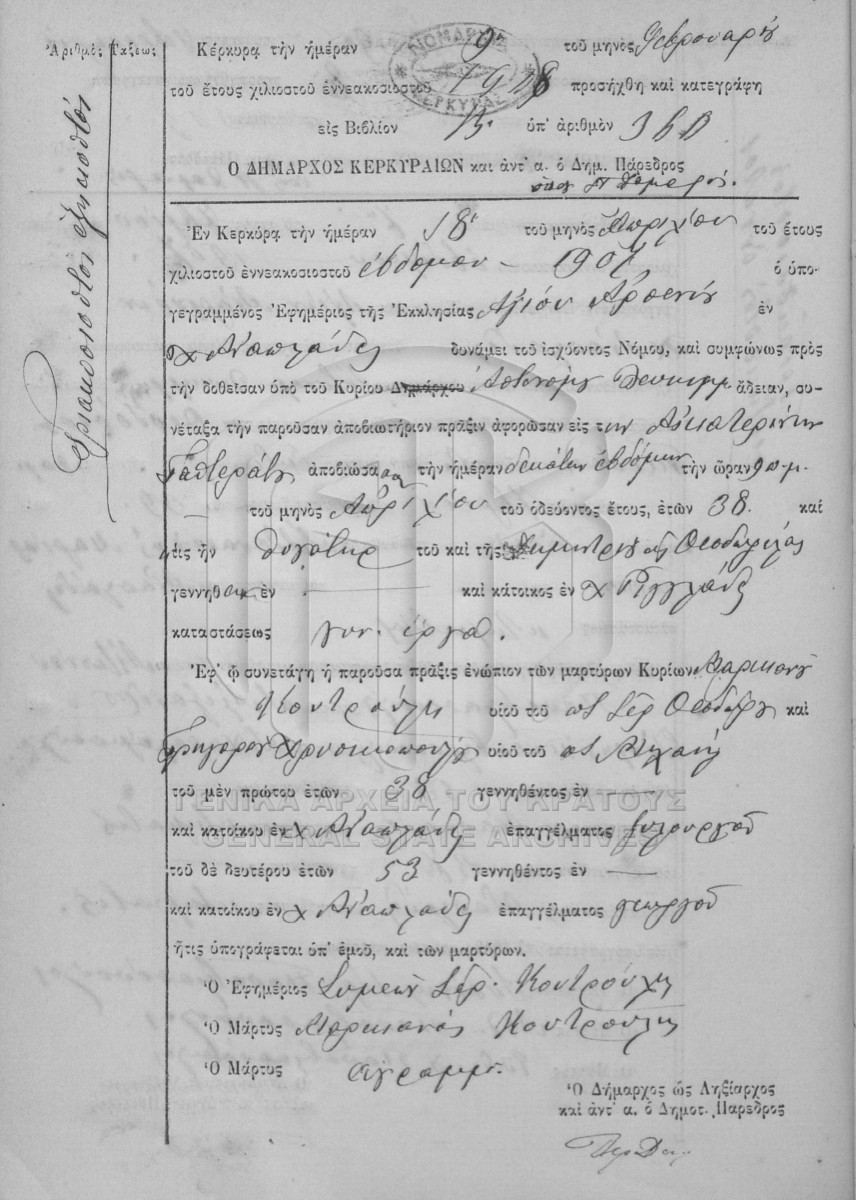 Ἀριθμὸς Τάξεως
Τριακοσιοστὸς ἑξηκοστὸς
Κέρκυρα τὴν ἡμέραν 9 τοῦ μηνὸς Φεβρουαρίου
τοῦ ἔτους χιλιοστοῦ ἐννεακοσιοστοῦ 1908 προσήχθη καὶ κατεγράφη
εἰς Βιβλίον ὑπ' ἀριθμὸν 360
Ο ΔΗΜΑΡΧΟΣ ΚΕΡΚΥΡΑΙΩΝ καὶ ἀντ' α. ὁ Δημ. Πάρεδρος
Ἐν Κερκύρᾳ τὴν ἡμέραν 18 τοῦ μηνὸς Ἀπριλίου τοῦ ἔτους
χιλιοστοῦ ἐννεακοσιοστοῦ ἑβδόμου - 1907 ὁ ὑπο-
γεγραμμένος Ἐφημέριος τῆς Ἐκκλησίας Ἁγίου Ἀρσενίου ἐν
χ Ἀναπλάδες δυνάμει τοῦ ἰσχύοντος Νόμου, καὶ συμφώνως πρὸς
τὴν δοθεῖσαν ὑπὸ τοῦ Κυρίου Δημάρχου Ἀστυνόμου Λευκίμμ ἄδειαν, συ-
νέταξα τὴν παροῦσαν ἀποβιωτήριον πρᾶξιν ἀφορῶσαν εἰς τὴν Αἰκατερίνην
Γαστεράτου ἀποβιώσασαν τὴν ἡμέραν δεκάτην ἑβδόμην τὴν ὥραν 9 π.μ.
— τοῦ μηνὸς Ἀπριλίου τοῦ ὁδεύοντος ἔτους, ἐτῶν 38. καὶ
τις ἦν θυγάτηρ τοῦ καὶ τῆς Δημητρίου Θεοδωρίλας
γεννηθ ἐν — καὶ κάτοικος ἐν χ
καταστάσεως γυν. ἐργα.
Ἐφ' ᾧ συνετάγη ἡ παροῦσα πρᾶξις ἐνώπιον τῶν μαρτύρων Κυρίων Μαρκιανοῦ
Κουτρούλη υἱοῦ τοῦ Σέρ Θεοδώρου καὶ
Γρηγορίου Χρυσικοπούλου υἱοῦ τοῦ Μιχαήλ
τοῦ μὲν πρώτου ἐτῶν 38 γεννηθέντος ἐν —
καὶ κατοίκου ἐν χ Ἀναπλάδες ἐπαγγέλματος ξυλουργοῦ
τοῦ δὲ δευτέρου ἐτῶν 53 γεννηθέντος ἐν —
καὶ κατοίκου ἐν χ Ἀναπλάδες ἐπαγγέλματος γεωργοῦ
ἥτις ὑπογράφεται ὑπ' ἐμοῦ, καὶ τῶν μαρτύρων.
Ὁ Ἐφημέριος Συμεὼν Σέρ. Κουτρούλη
Ὁ Μάρτυς Μαρκιανός Κουτρούλης
Ὁ Μάρτυς ἀγραμμ.
Ὁ Δήμαρχος ὡς Ληξίαρχος
καὶ ἀντ' α. ὁ Δημοτ. Πάρεδρος
ΓΕΝΙΚΑ ΑΡΧΕΙΑ ΤΟΥ ΚΡΑΤΟΥΣ
GENERAL STATE ARCHIVES